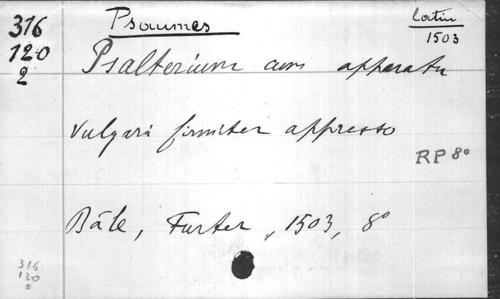 316
120
2
Psaumes
latin
1503
Psalterium cum apparatu
vulgari firmiter appresso
RP 8°
Bâle, Furter, 1503, 8°
316
120
2